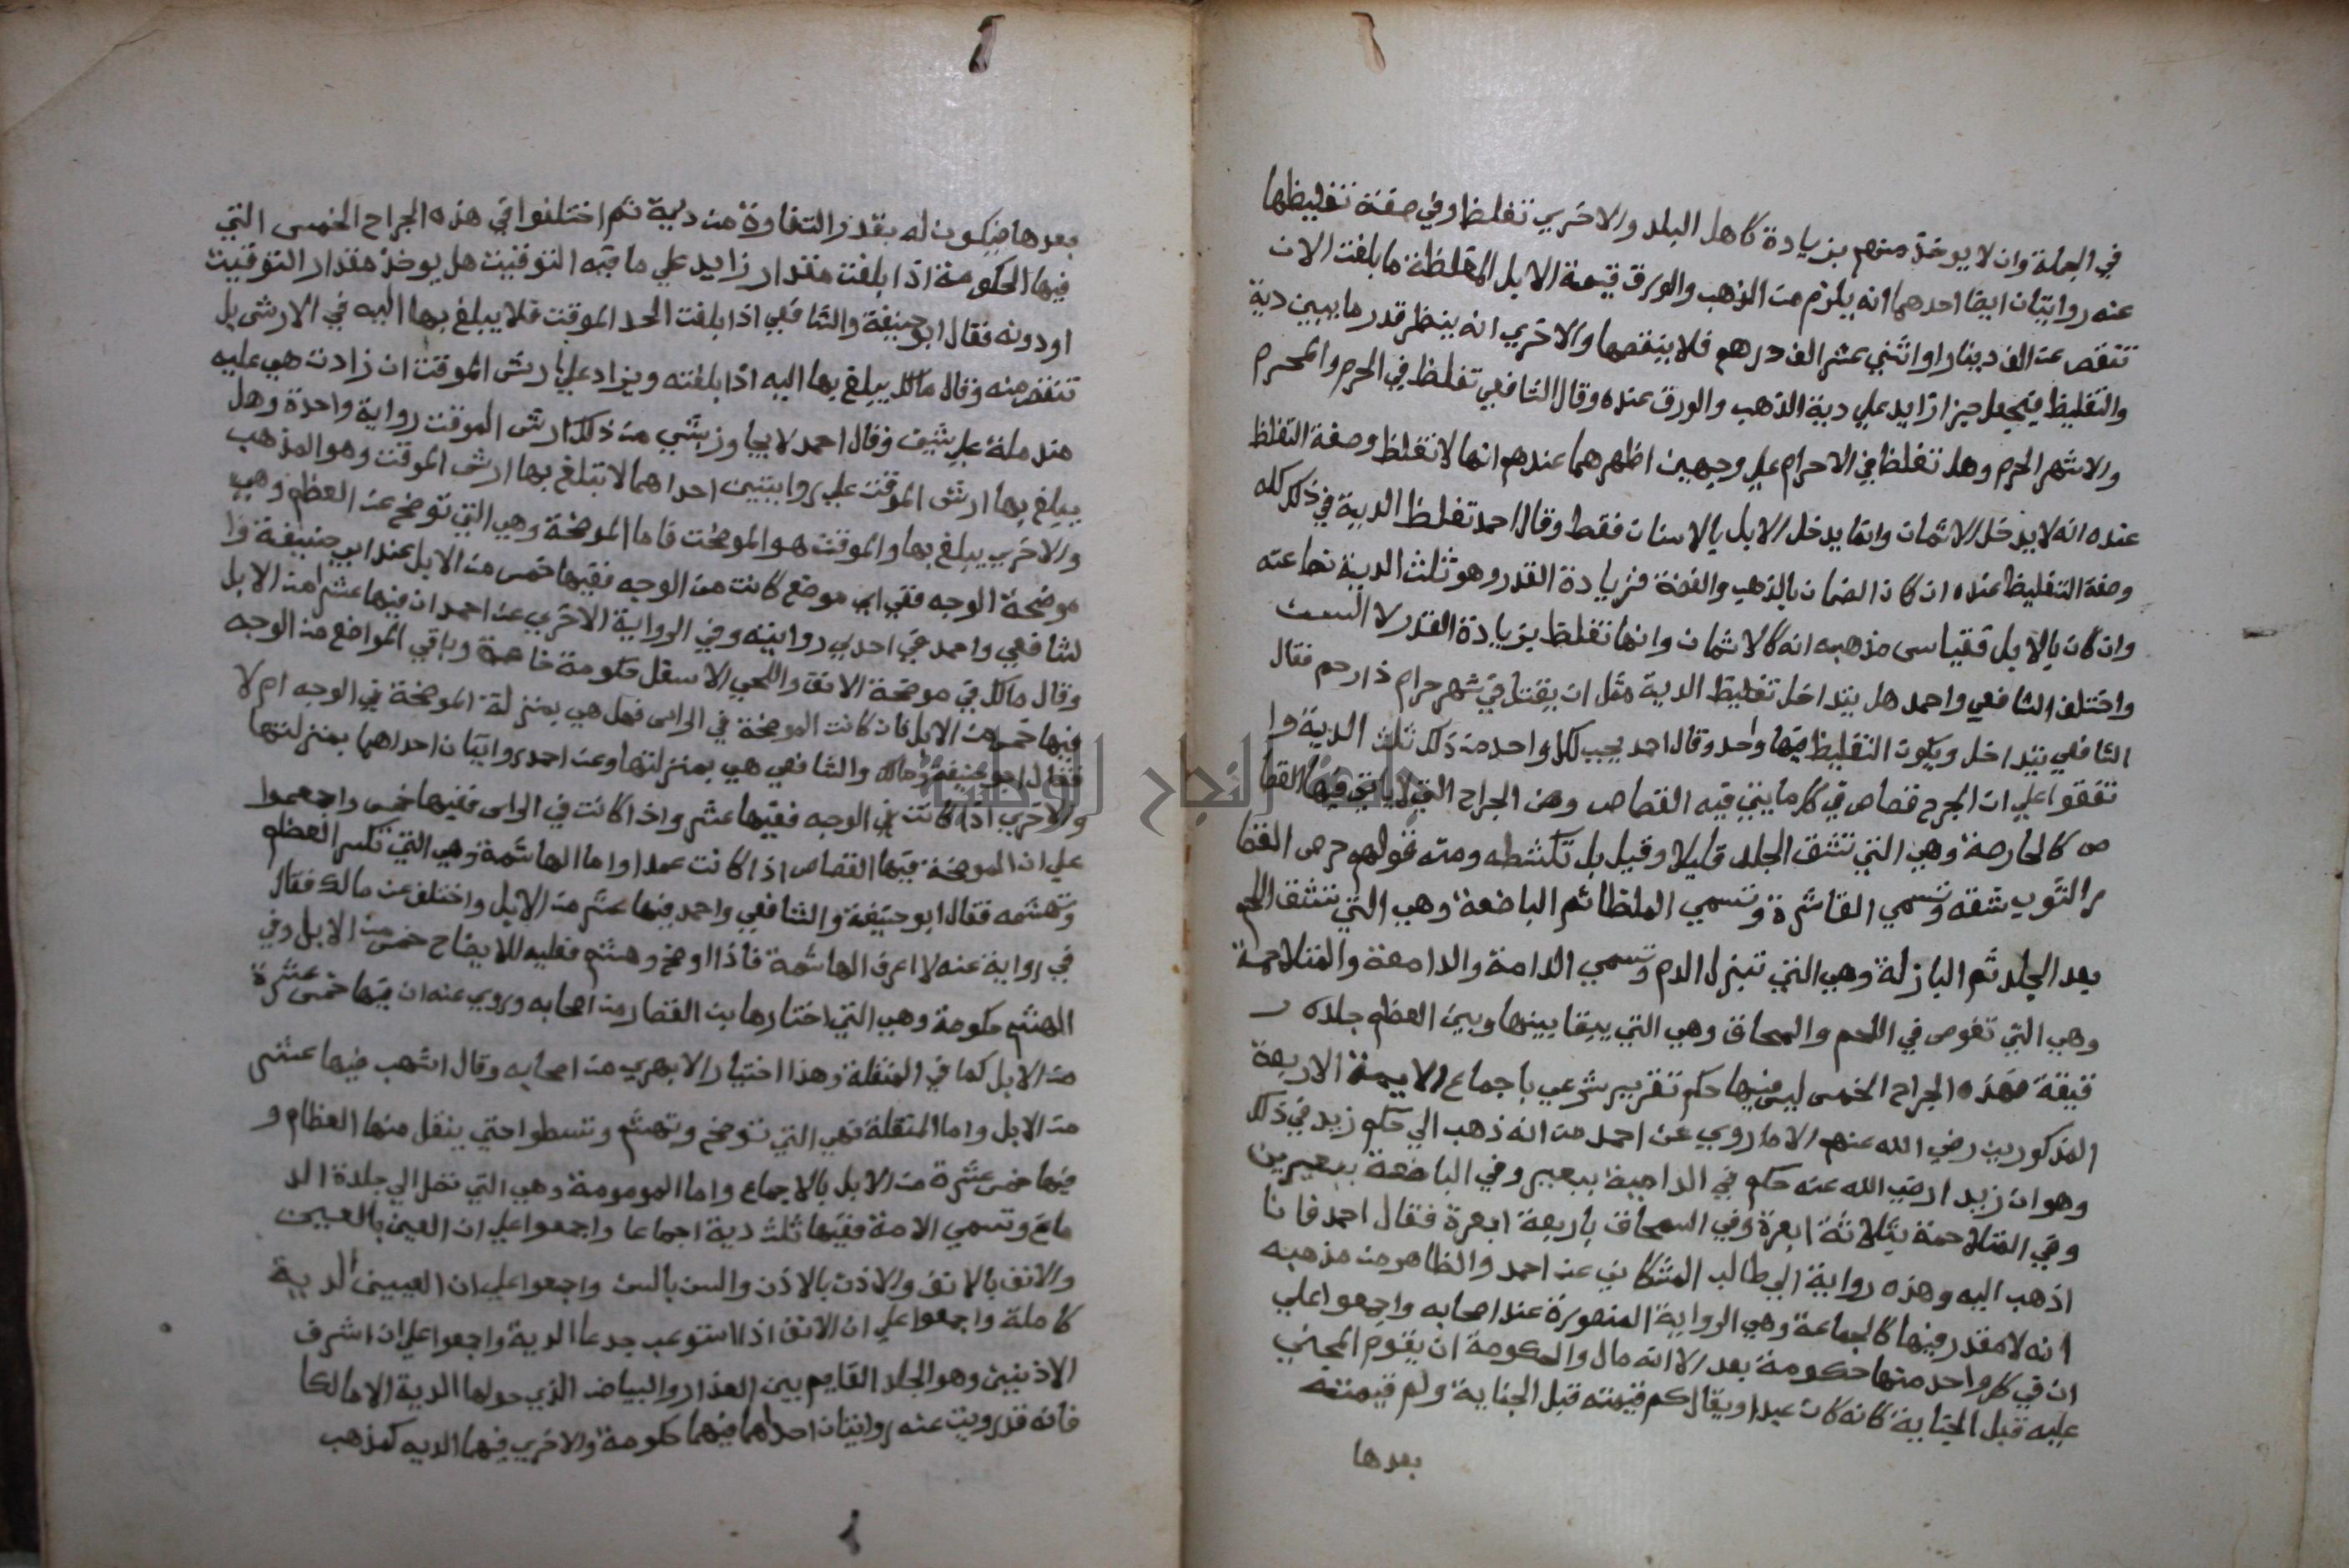 في الجملة وان لا يوخذ منهم بزيادة كاهل البلد والاخري تغلظ وفي صفة تغليظها
عنه روايتان ايضا احدهما انه يلزم من الذهب والورق قيمة الابل المغلظة ما بلغت الا ان
تنقص عن الف دينار او اثني عشر الف درهم فلا ينقصها والاخري انه ينظر قدر ما بين دية
والتغليظ فيجعل جيزا زايد علي دية الذهب والورق عنده وقال الشافعي تغلظ في الحرم والمحرم
والاشهر الحرم وهل تغلظ في الاحرام علي وجهين اظهرهما عندهم انها لا تغلظ وصفة التغلظ
عنده انه لا يدخل الاثمان وانما يدخل الابل بالاسنان فقط وقال احمد تغلظ الدية في ذلك كله
وصفة التغليظ عنده ان كان الضمان بالذهب والفضة فزيادة القدر وهو ثلث الدية نصا عنه
وان كان بالابل فقياس مذهبه انه كالاثمان وانها تغلظ بزيادة القدر لا السن
واختلف الشافعي واحمد هل يتداخل تغليظ الدية مثل ان يقتل في شهر حرام ذا رحم فقال
الشافعي يتداخل ويكون التغليظ فيها واحد وقال احمد يجب لكل واحد من ذلك ثلث الدية وا
تفقوا علي ان الجرح قصاص في كل ما يتي فيه القصاص ومن الجراح التي لا ياتي فيها القصا
ص كالحارصة وهي التي تشق الجلد قليلا وقيل بل تكشطه ومنه قولهم حرص القصا
ر الثوب شقه وتسمي القاشرة وتسمي الملطا ثم الباضعة وهي التي تشق اللحم
بعد الجلد ثم البازلة وهي التي تبزل الدم وتسمي الدامة والدامعة والمتلاحمة
وهي التي تغوص في اللحم والسمحاق وهي التي يبقا بينها وبين العظم جلده ر
قيقة فهذه الجراح الخمس ليس فيها حكم تقرير شرعي باجماع الايمة الاربعة
المذكورين رضي الله عنهم الا ما روي عن احمد من انه ذهب الي حكم زيد في ذلك
وهو ان زيدا رضي الله عنه حكم في الدامية ببعير وفي الباضعة ببعيرين
وفي المتلاحمة بثلاثة ابعرة وفي السمحاق باربعة ابعرة فقال احمد فانا
اذهب اليه وهذه رواية ابي طالب المشكاني عن احمد والظاهر من مذهبه
انه لا مقدر فيها كالجماعة وهي الرواية المنصورة عند اصحابه واجمعوا علي
ان في كل واحد منها حكومة بعد الاندمال والحكومة ان يقوم المجني
عليه قبل الجناية كانه كان عبدا ويقال كم قيمته قبل الجناية ولم قيمته
بعدها
بعدها فيكون له بقدر التفاوة من دية ثم اختلفوا في هذه الجراح الخمس التي
فيها الحكومة اذا بلغت مقدار زايد علي ما فيه التوقيت هل يوخذ مقدار التوقيت
او دونه فقال ابو حنيفة والشافعي اذا بلغت الحد الموقت فلا يبلغ بها اليه في الارش بل
تنقص منه وقال مالك يبلغ بها اليه اذا بلغته ويزاد علي ارش الموقت ان زادت هي عليه
مندملة علي شين وقال احمد لا يجاوز بشي من ذلك ارش الموقت رواية واحدة وهل
يبلغ بها ارش الموقت علي روايتين احداهما لا تبلغ بها ارش الموقت وهو المذهب
والاخري يبلغ بها والموقت هو الموضحت فاما الموضحة وهي التي توضح عن العظم وهي
موضحة الوجه ففي اي موضع كانت من الوجه ففيها خمس من الابل عند ابي حنيفة وا
لشافعي واحمد في احدي روايتيه وفي الرواية الاخري عن احمد ان فيها عشرا من الابل
وقال مالك في موضحة الانف واللحي الاسفل حكومة خاصة وباقي المواضع من الوجه
فيها خمس من الابل فان كانت الموضحة في الراس فهل هي بمنزلة الموضحة في الوجه ام لا
فقال ابو حنيفة ومالك والشافعي هي بمنزلتها وعن احمد روايتان احداهما بمنزلتها
والاخري اذا كانت في الوجه ففيها عشر واذا كانت في الراس ففيها خمس واجمعوا
علي ان الموضحة فيها القصاص اذا كانت عمدا واما الهاشمة وهي التي تكسر العظم
وتهشمه فقال ابو حنيفة والشافعي واحمد فيها عشر من الابل واختلف عن مالك فقال
في رواية عنه لا اعرف الهاشمة فاذا اوضح وهشم فعليه للايضاح خمس من الابل وفي
الهشم حكومة وهي التي اختارها بن القصار من اصحابه وروي عنه ان فيها خمس عشرة
من الابل كما في المنقلة وهذا اختيار الابهري من اصحابه وقال اشهب فيها عشر
من الابل واما المنقلة فهي التي توضح وتهشم وتسطوا حتي ينقل منها العظام و
فيها خمس عشرة من الابل بالاجماع واما المومومة وهي التي تصل الي جلدة الد
ماغ وتسمي الامة ففيها ثلث دية اجماعا واجمعوا علي ان العين بالعين
والانف بالانف والاذن بالاذن والسن بالسن واجمعوا علي ان العينين الدية
كاملة واجمعوا علي ان الانف اذا استوعب جدعا الدية واجمعوا علي ان اشرف
الاذنين وهو الجلد القايم بين العذار والبياض الذي حولها الدية الا مالكا
فانه قد رويت عنه روايتان احداهما فيهما حكومة والاخري فيهما الديه كمذهب
جامعة النجاح الوطنية